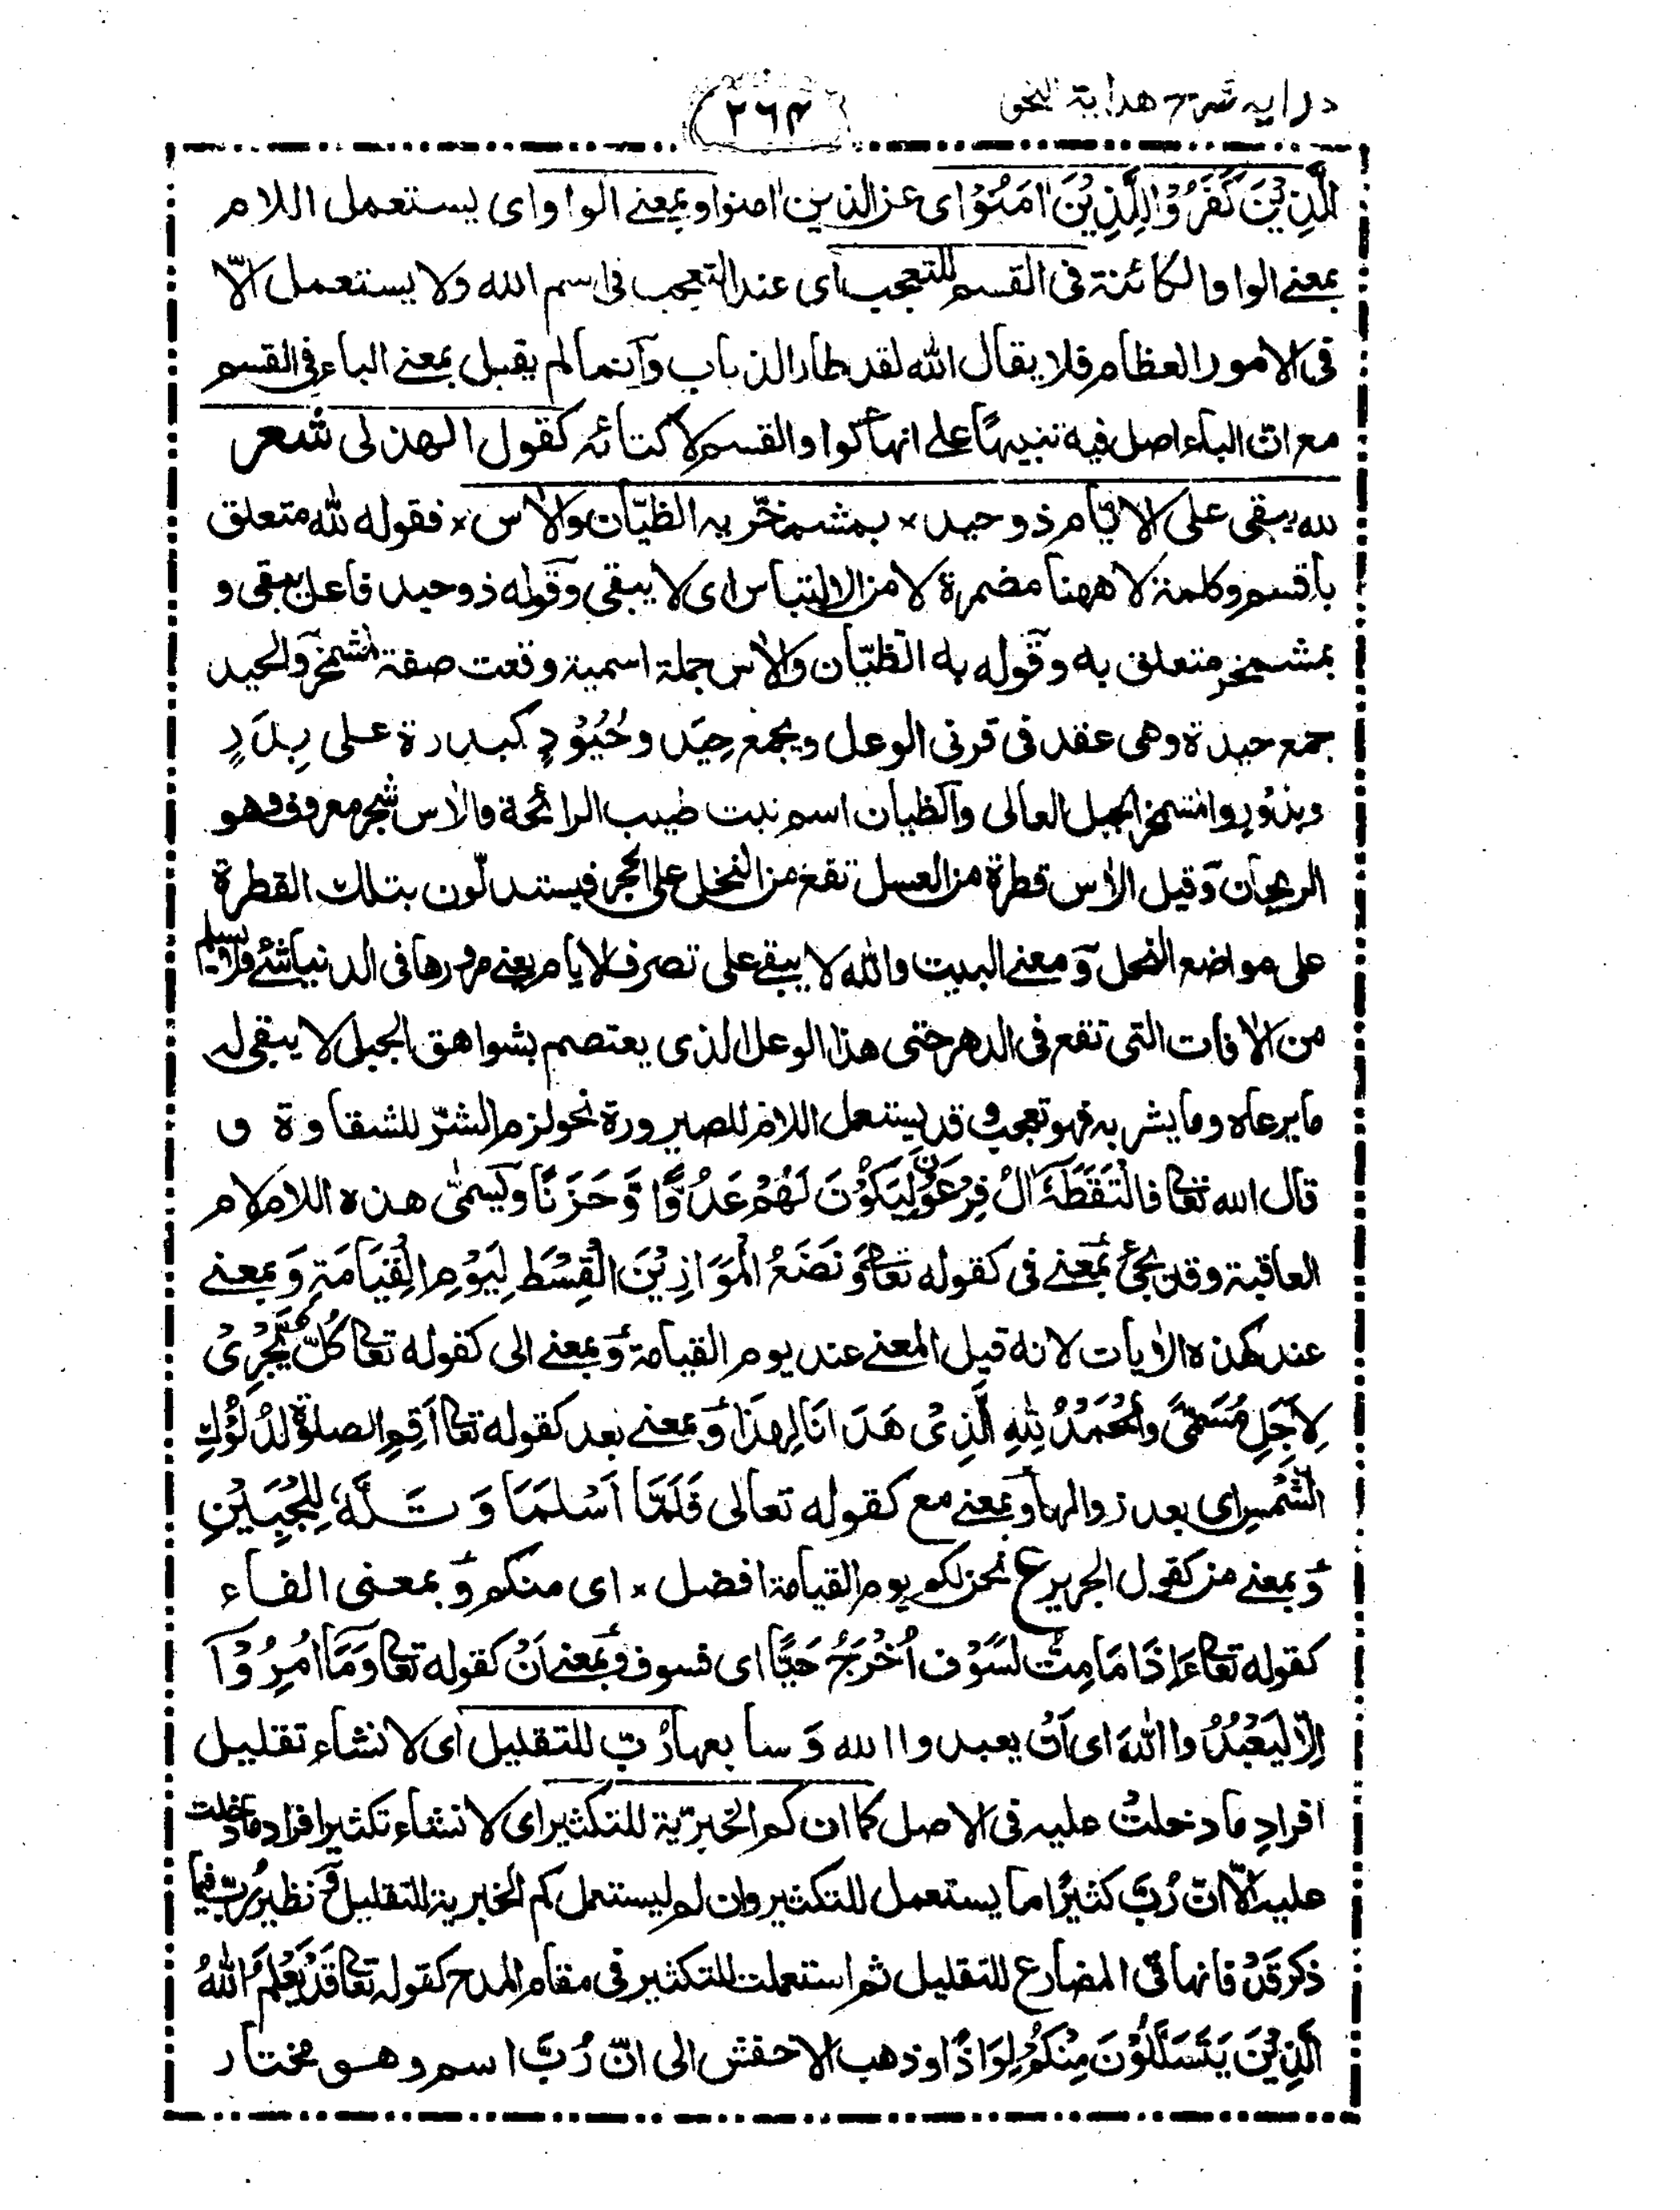 درايه شرح هداية النحو
٢٦٤
الَّذِيْنَ كَفَرُوْا لِلَّذِيْنَ اٰمَنُوْا اى عن الذين اٰمنوا وبمعنى الواو اى يستعمل اللام
بمعنى الواو الكائنة فى القسم للتعجب اى عند التعجب فى اسم الله ولا يستعمل الّا
فى الامور العظام فلا يقال لله لقد طار الذباب وانما لم يقبل بمعنى الباء فى القسم
مع انّ الباء اصل فيه تنبيهًا على انها كواو القسم لا كتائه كقول الهذلى شعر
لله يبقى على الايّام ذو حيد × بمشمخرّ به الظيّان والاٰس × فقوله لله متعلق
باقسم وكلمة لا ههنا مضمرة لامن الالتباس اى لا يبقى وقوله ذو حيد فاعل يبقى و
بمشمخر متعلق به وقوله به الظيّان والاٰس جملة اسمية وقعت صفة لمشمخر والحيد
جمع حيدة وهى عقد فى قرنى الوعل ويجمع حِيَد وحُيُوْدٍ كبدرة على بِدَدٍ
وبدُوْرٍ والمشمخر الجبل العالى والظيان اسم نبت طيب الرائحة والاٰس شجر معروف وهو
الريحان وقيل الاٰس قطرة من العسل تقع من النحل على الحجر فيستدلّون بتلك القطرة
على مواضع النحل ومعنى البيت والله لا يبقى على تصرف الايام يعنى مرورها فى الدنيا شئ ولا يسلم
من الاٰفات التى تقع فى الدهر حتى هذا الوعل الذى يعتصم بشواهق الجبل لا يبقى له
ما يرعاه وما يشربه فهو تعجب وقد يستعمل اللام للصيرورة نحو لزم الشرّ للشقاوة و
قال الله تعالى فَالْتَقَطَهٗ اٰلُ فِرْعَوْنَ لِيَكُوْنَ لَهُمْ عَدُوًّا وَّحَزَنًا ويسمّٰى هذه اللام لام
العاقبة وقد يجئ بمعنى فى كقوله تعالى وَنَضَعُ الْمَوَازِيْنَ الْقِسْطَ لِيَوْمِ الْقِيَامَةِ وَبمعنى
عند كهذه الاٰيات لانه قيل المعنى عند يوم القيامة وبمعنى الى كقوله تعالى كُلٌّ يَّجْرِىْ
لِاَجَلٍ مُّسَمًّى وَالْحَمْدُ لِلّٰهِ الَّذِىْ هَدَانَا لِهٰذَا وبمعنى بعد كقوله تعالى اَقِمِ الصلوٰة لِدُلُوْكِ
الشَّمْسِ اى بعد زوالها وبمعنى مع كقوله تعالى فَلَمَّا اَسْلَمَا وَتَلَّهٗ لِلْجَبِيْنِ
وبمعنى من كقول الجرير ع نحن لكم يوم القيامة افضل × اى منكم وبمعنى الفاء
كقوله تعالى ءَاِذَا مَا مِتُّ لَسَوْفَ اُخْرَجُ حَيًّا اى فسوف وبمعنى اَنْ كقوله تعالى وَمَا اُمِرُوْٓا
اِلَّا لِيَعْبُدُوا اللّٰهَ اى اَنْ يعبدوا الله وَسابعها رُبّ للتقليل اى لانشاء تقليل
افراد ما دخلت عليه فى الاصل كما ان كم الخبرّية للتكثير اى لانشاء تكثير افراد ما دخلت
عليه الّا انّ رُبَّ كثيرًا ما يستعمل للتكثير وان لم ليستعمل كم الخبرية للتقليل ونظير رُبّ فيما
ذكر قَدْ فانها فى المضارع للتقليل ثم استعملت للتكثير فى مقام المدح كقوله تعالى قَدْ يَعْلَمُ اللّٰهُ
الَّذِيْنَ يَتَسَلَّلُوْنَ مِنْكُمْ لِوَاذًا وذهب الاخفش الى انّ رُبَّ اسم وهو مختار